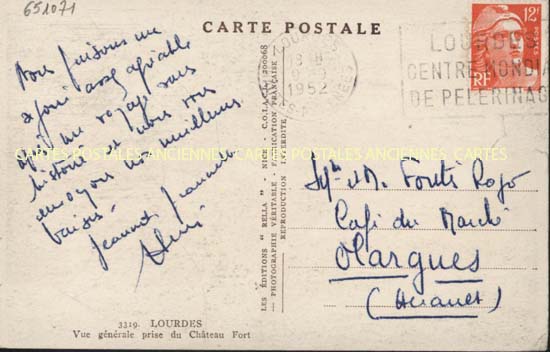 651071
CARTE POSTALE
12F
POSTES
RF
1952
LOURDES
CENTRE MONDIA
DE PELERINAG
Nous faisons un
séjour assez agréable
après un voyage sans
histoire et nous vous
envoyons nos meilleurs
baisers
Jeannot Jeannine
CARTES POSTALES ANCIENNES CARTES POSTALES ANCIENNES CARTES
LES ÉDITIONS " RELLA " — NICE - C.O.L.A.C. 200068
— PHOTOGRAPHIE VÉRITABLE - FABRICATION FRANÇAISE —
REPRODUCTION INTERDITE
Café du Marché
Olargues
(Hérault)
3319. LOURDES
Vue générale prise du Château Fort